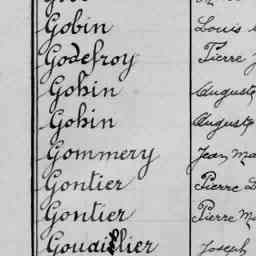 Gobin Louis
Godefroy Pierre
Gohin Auguste
Gohin Auguste
Gommery Jean Ma
Gontier Pierre L
Gontier Pierre Ma
Goudallier Joseph